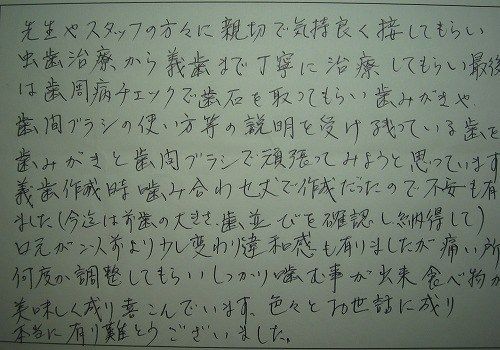 先生やスタッフの方々に親切で気持良く接してもらい
虫歯治療から義歯まで丁寧に治療してもらい最後
は歯周病チェックで歯石を取ってもらい歯みがきや、
歯間ブラシの使い方等の説明を受け残っている歯を
歯みがきと歯間ブラシで頑張ってみようと思っています
義歯作成時噛み合わせ丈で作成だったので不安も有
ました(今迄は前歯の大きさ、歯並びを確認し納得して)
口元が以前より少し変わり違和感も有りましたが痛い所
何度か調整してもらいしっかり噛む事が出来食べ物が
美味しく成り喜こんでいます。色々とお世話に成り
本当に有り難とうございました。